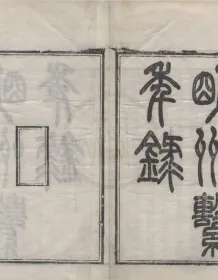 明州繫
年錄